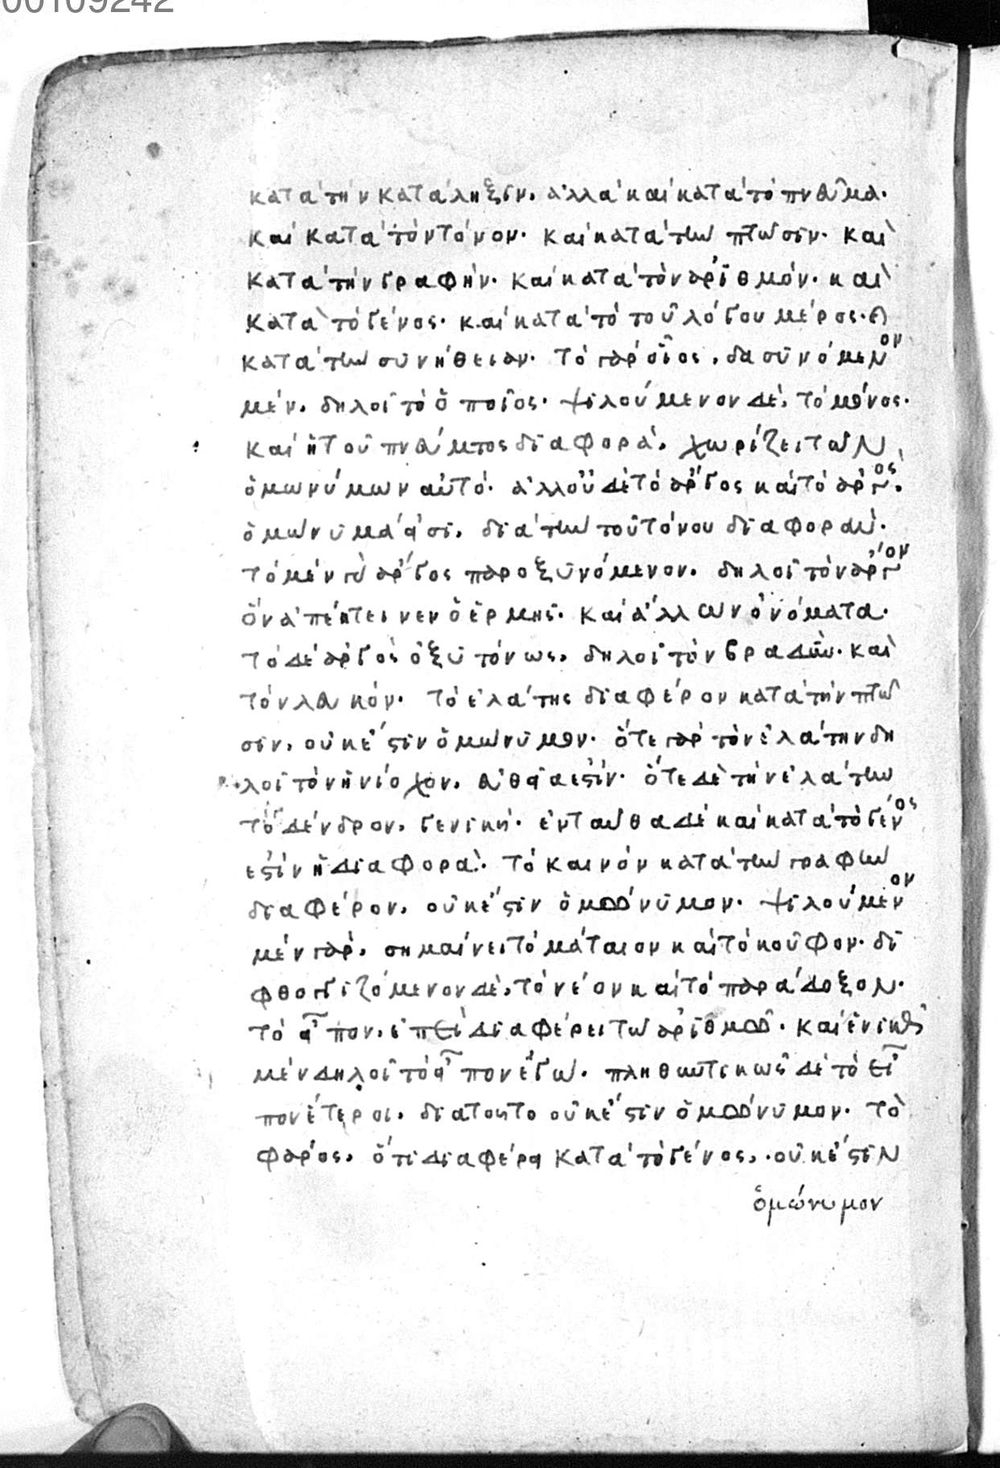 00109242
κατὰ τὴν κατάληξιν. ἀλλὰ καὶ κατὰ τὸ πνεῦμα.
καὶ κατὰ τὸν τόνον. καὶ κατὰ τὴν πτῶσιν. καὶ
κατὰ τὴν γραφήν. καὶ κατὰ τὸν ἀριθμόν. καὶ
κατὰ τὸ γένος. καὶ κατὰ τὸ τοῦ λόγου μέρος.
κατὰ τὴν συνήθειαν. τὸ γὰρ οἷος, δασυνόμενον
μέν, δηλοῖ τὸ ὁποῖος. ψιλούμενον δὲ, τὸ μόνος.
καὶ ἡ τοῦ πνεύματος διαφορὰ, χωρίζει τῶν
ὁμωνύμων αὐτό. ἀλλ' οὐδὲ τὸ ἄργος καὶ τὸ ἀργός,
ὁμώνυμά εἰσι, διὰ τὴν τοῦ τόνου διαφοράν.
τὸ μὲν γὰρ ἄργος παροξυνόμενον, δηλοῖ τὸν ἄργον
ὃν ἀπέκτεινεν ὁ ἑρμῆς. καὶ ἄλλων ὀνόματα.
τὸ δὲ ἀργὸς ὀξυτόνως, δηλοῖ τὸν βραδὺν. καὶ
τὸν λευκόν. τὸ ἐλάτης διαφέρον κατὰ τὴν πτῶ
σιν, οὐκ ἔστιν ὁμώνυμον. ὅτε γὰρ τὸν ἐλάτην δη
λοῖ τὸν ἡνίοχον, εὐθεῖα ἐστίν. ὅτε δὲ τὴν ἐλάτην
τὸ δένδρον, γενική. ἐνταῦθα δὲ καὶ κατὰ τὸ γένος
ἐστὶν ἡ διαφορὰ. τὸ καινὸν κατὰ τὴν γραφὴν
διαφέρον, οὐκ ἔστιν ὁμώνυμον. ψιλούμενον
μὲν γὰρ, σημαίνει τὸ μάταιον καὶ τὸ κοῦφον. δι
φθογγιζόμενον δὲ, τὸ νέον καὶ τὸ παράδοξον.
τὸ εἶπον, ἐπεὶ διαφέρει τῶ ἀριθμῶ. καὶ ἑνικῶς
μὲν δηλοῖ τὸ εἶπον ἐγώ. πληθυντικῶς δὲ τὸ εἶ
πον ἕτεροι. διατοῦτο οὐκ ἔστιν ὁμώνυμον. τὸ
φάρος, ὅτι διαφέρει κατὰ τὸ γένος, οὐκ ἔστιν
ὁμώνυμον